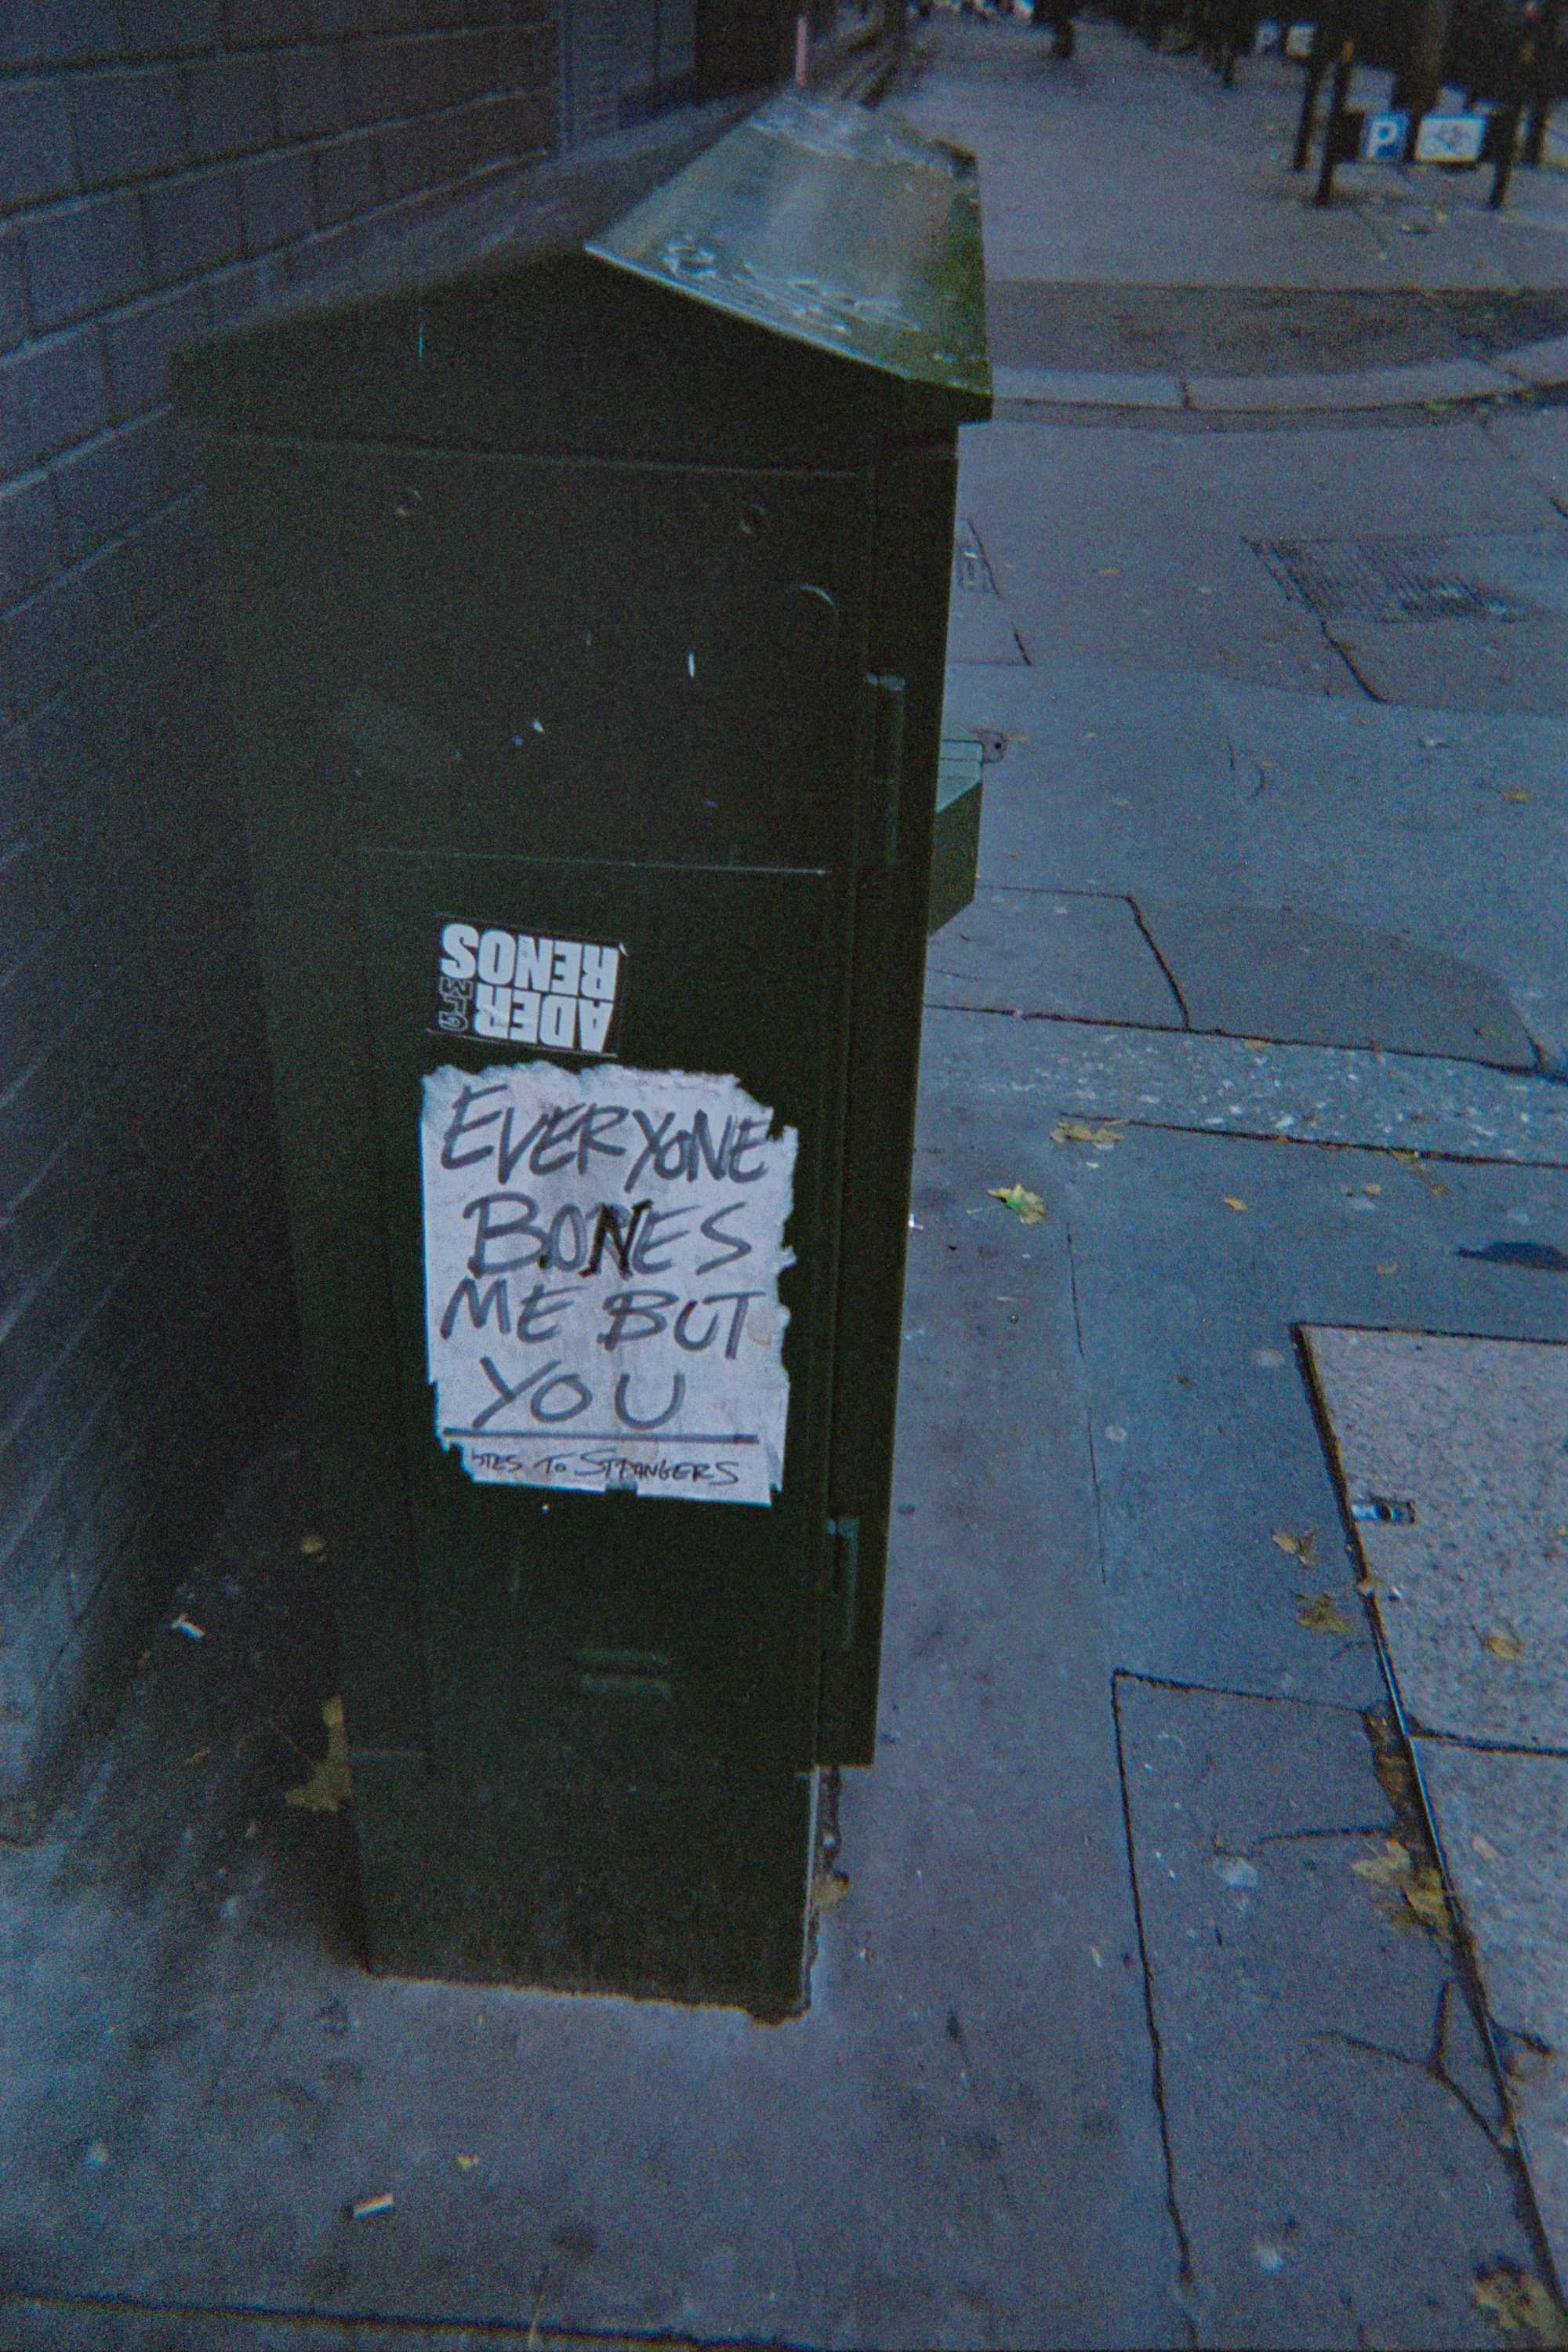 P
ADER
RENOS
EVERYONE
BONES
ME BUT
YOU
TO STRANGERS